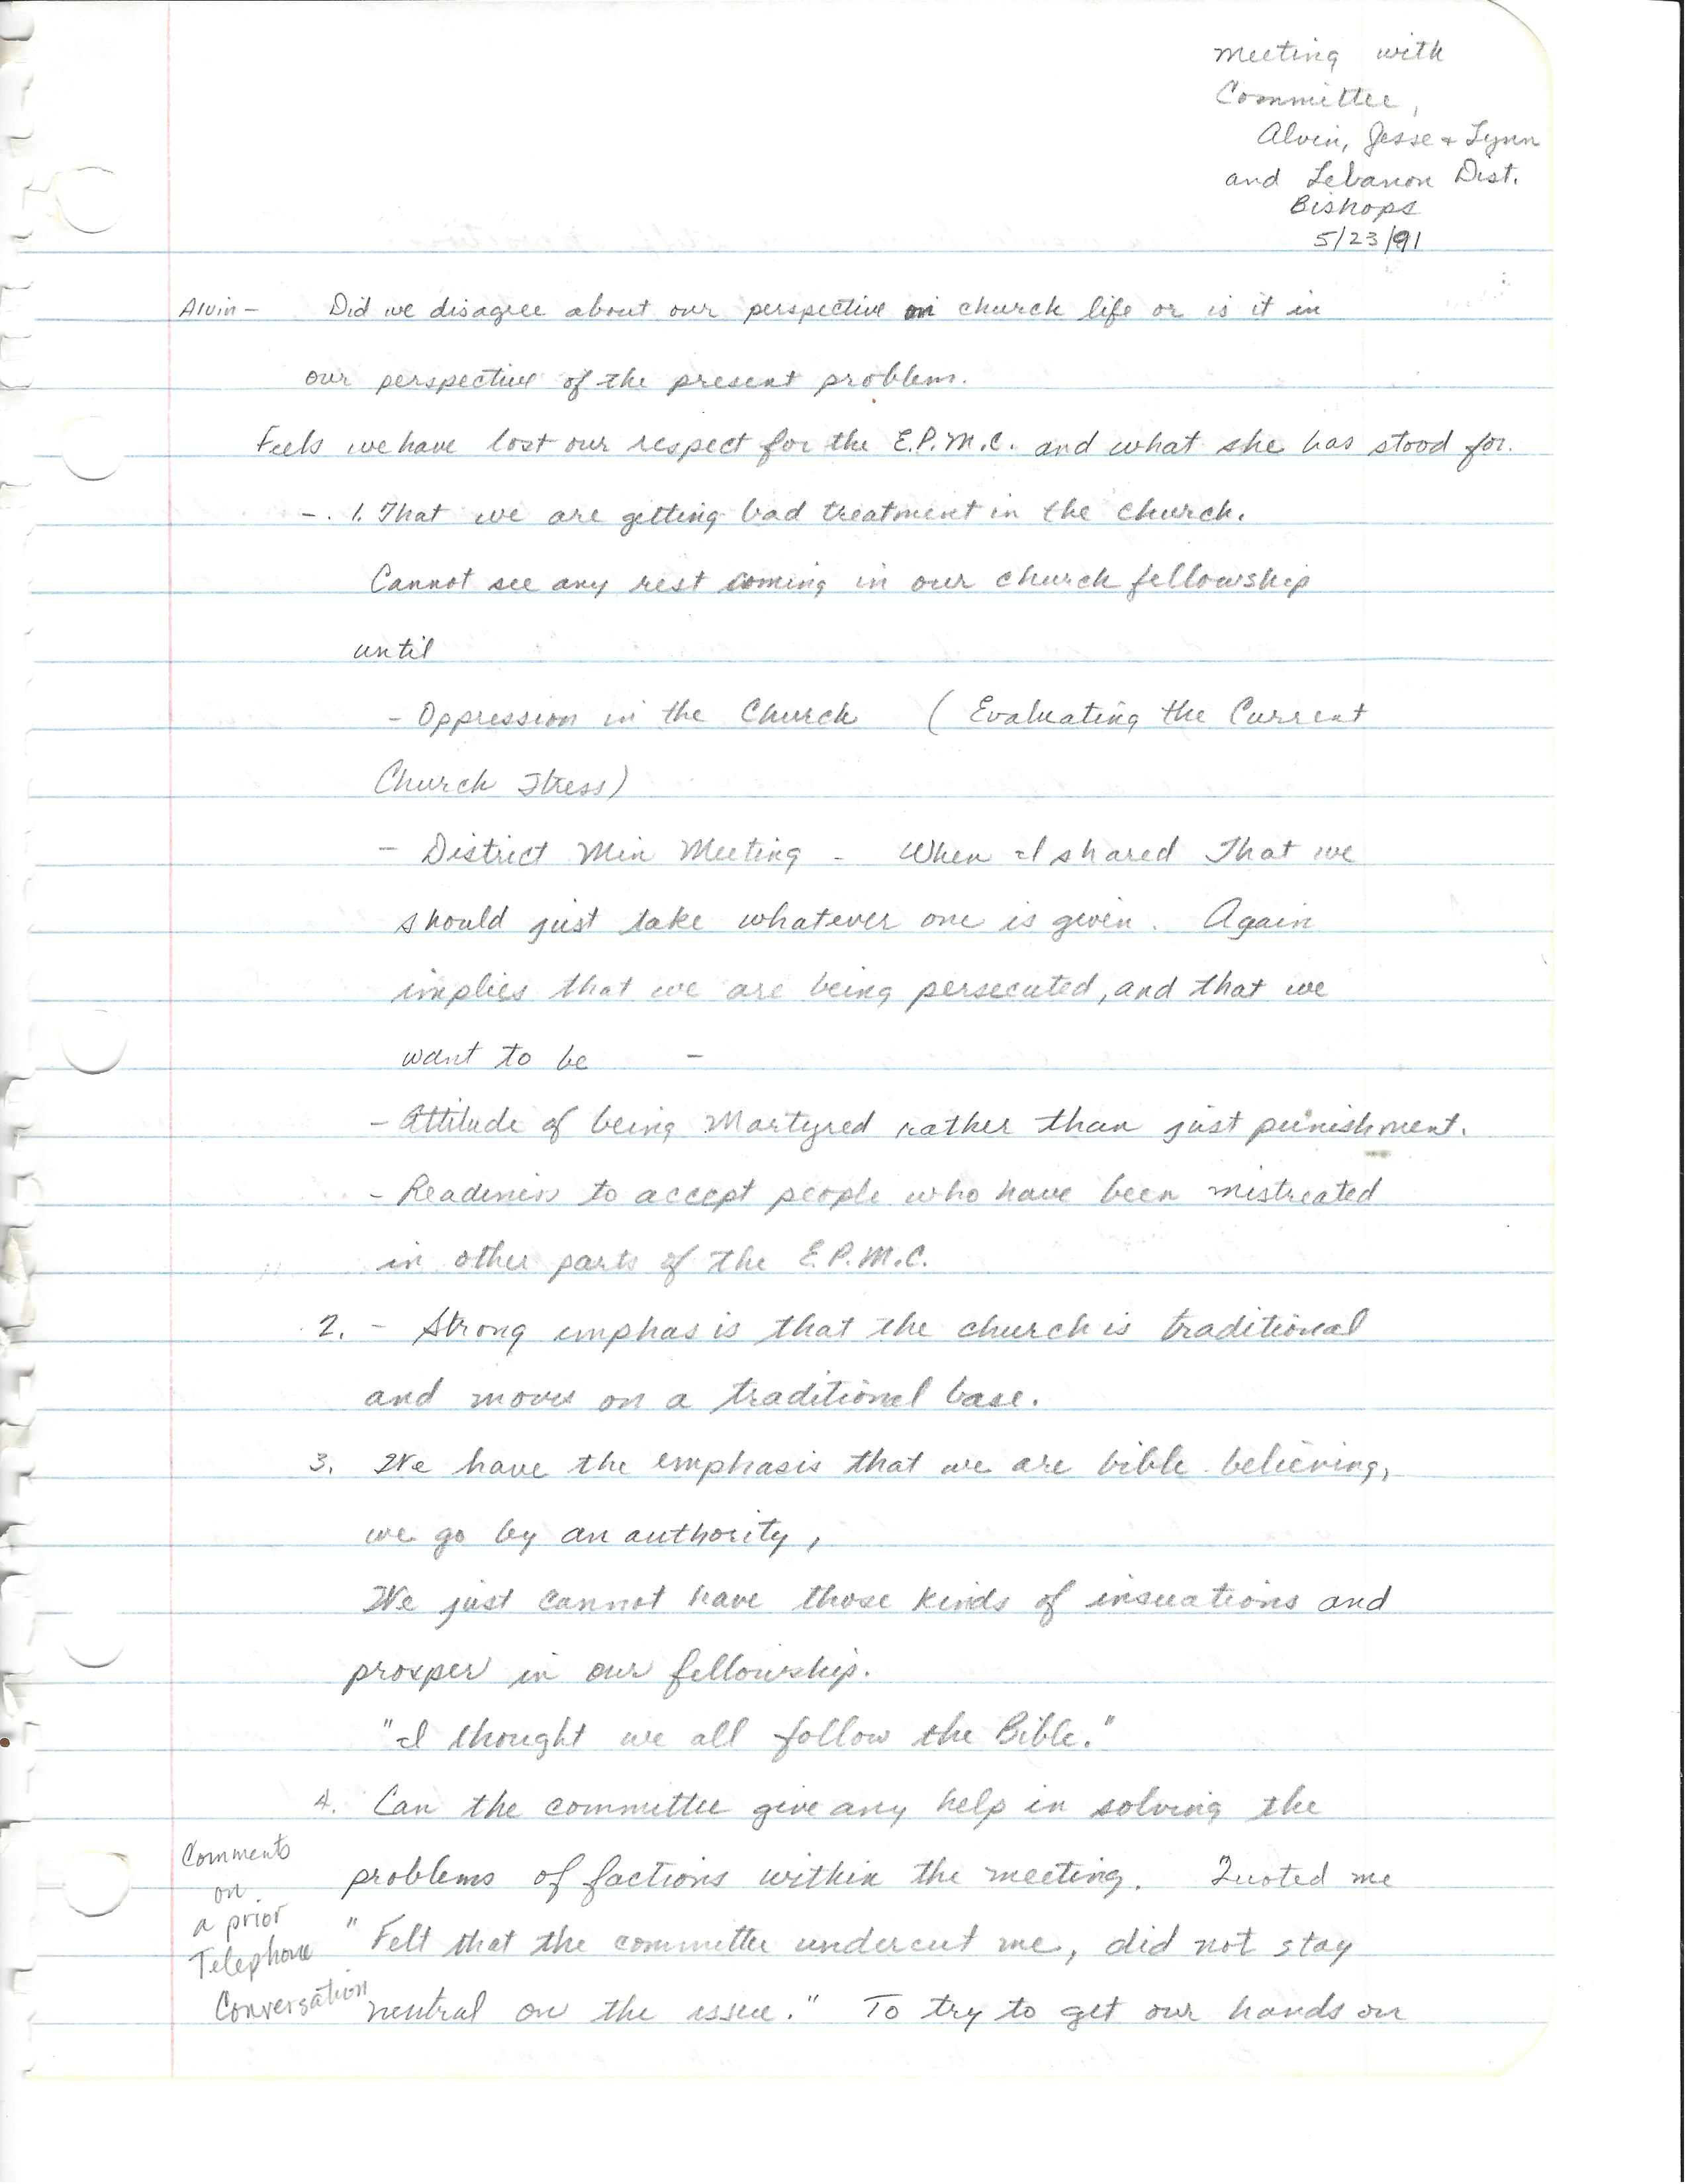 Meeting with
Committee,
Alvin, Jesse + Lynn
and Lebanon Dist.
Bishops
5/23/91
Alvin - Did we disagree about our perspective on church life or is it in
our perspective of the present problem.
Feels we have lost our respect for the E.P.M.C. and what she has stood for.
-. 1. That we are getting bad treatment in the church.
Cannot see any rest coming in our church fellowship
until
- Oppression in the Church (Evaluating the Current
Church Stress)
- District Min Meeting - When I shared That we
should just take whatever one is given. Again
implies that we are being persecuted, and that we
want to be -
- Attitude of being Martyred rather than just punishment.
- Readiness to accept people who have been mistreated
in other parts of the E.P.M.C.
2. - Strong emphasis that the church is traditional
and moves on a traditional base.
3. We have the emphasis that we are bible believing,
we go by an authority,
We just cannot have those kinds of insuations and
prosper in our fellowship.
"I thought we all follow the Bible."
4. Can the committee give any help in solving the
problems of factions within the meeting. Quoted me
"Felt that the committee undercut me, did not stay
neutral on the issue." To try to get our hands on
Comments
on
a prior
Telephone
Conversation